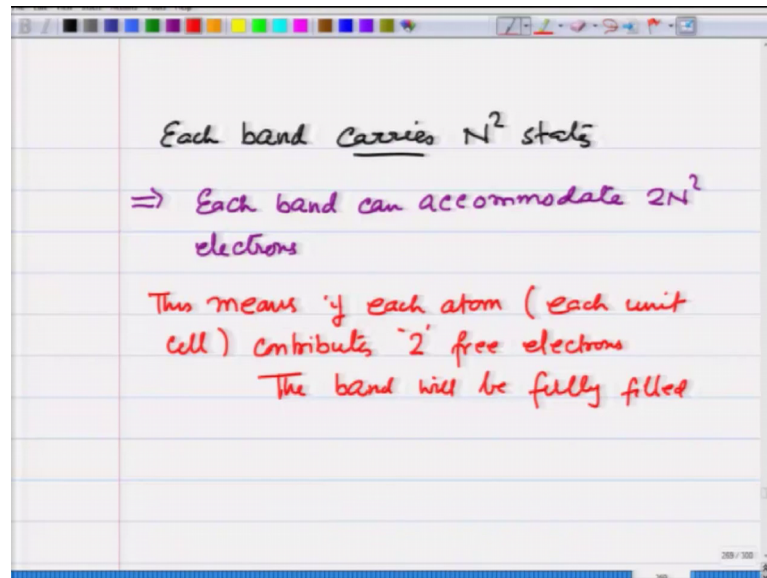 Each band carries N² states
⇒ Each band can accommodate 2N²
electrons
This means if each atom (each unit
cell) contributes '2' free electrons
The band will be fully filled
269 / 300